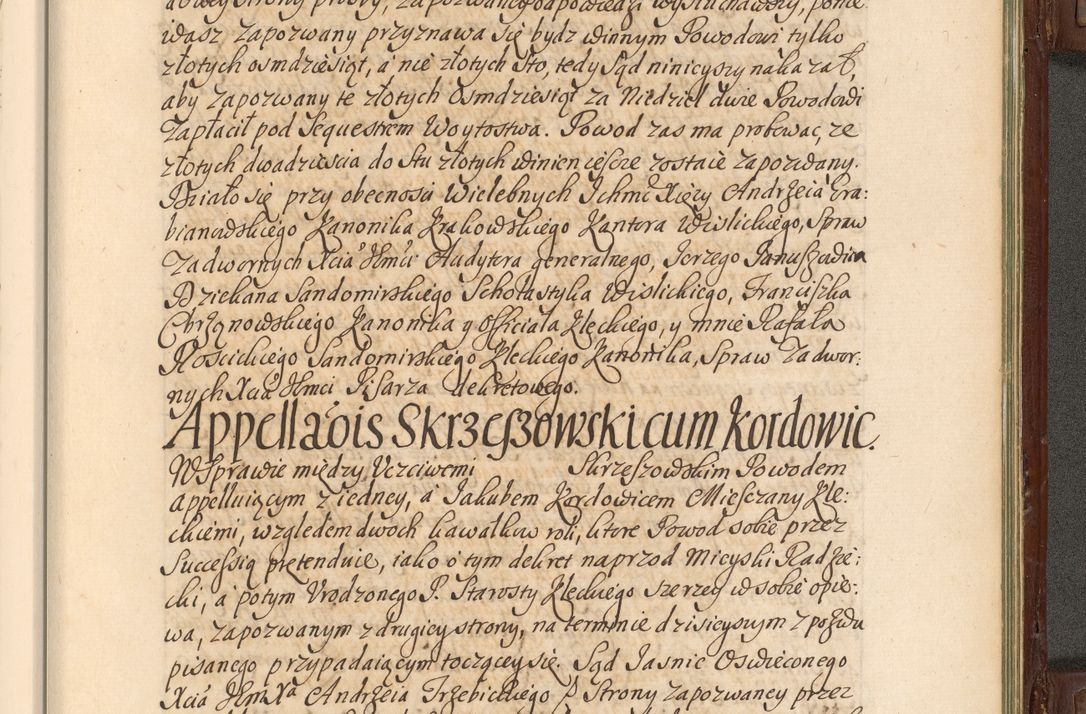 idasz Zapozwany przyznawa się bydz winnym Powodowi tylko
złotych osmdziesiąt, a nie złotych sto, tedy Sąd ninieyszy nakazał,
aby Zapozwany te złotych Osmdziesiąt za Niedziel dwie Powodowi
Zapłacił pod Sequestrem Woytostwa. Powod zas ma probowac, ze
złotych dwadziescia do stu złotych winien ieszcze zostaie Zapozwany.
Działo się przy obecnosci Wielebnych Ichmc Xięzy Andrzeia Gra:
bianowskiego Kanonika Krakowskiego Kantora Wislickiego, Spraw
Zadwornych Xcia Jmci Audytora generalnego, Jerzego Januszowica
Dziekana Sandomirskiego Scholastyka Wislickiego, Franciszka
Chrząnowskiego Kanonika y Officiała Kleckiego, y mnie Rafała
Roscickiego Sandomirskiego Kleckiego Kanonika, Spraw Zadwor:
nych Xcia Jmci Pisarza dekretowego.
Appellaõis Skrzeszowski cum Kordowic.
W Sprawie między Uczciwemi Skrzeszowskim Powodem
appelluiącym z iedney, a Jakubem Kordowicem Mieszczany Kle:
ckiemi, względem dwoch kawałkow roli, ktore Powod sobie przez
Successią pretenduie, iako o tym dekret naprzod Mieyski Radzie:
cki, a potym Urodzonego P. Starosty Kleckiego szerzey w sobie opie:
wa, Zapozwanym z drugiey strony, na terminie dzisieyszym z pozwu
pisanego przypadaiącym toczącey się. Sąd Jasnie Oswieconego
Xcia Jmi Xa Andrzeia Trzebickiego P Strony Zapozwaney przez